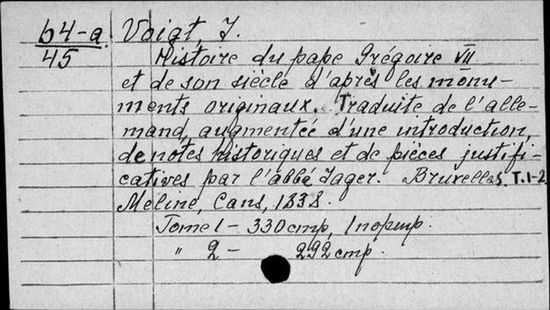 64-a Voigt, J.
45 Histoire du pape Grégoire VII
et de son siècle d'après les monu-
ments originaux. Traduite de l'alle-
mand, augmentée d'une introduction,
de notes historiques et de pièces justifi-
catives par l'abbé Jager. Bruxelles, T. 1-2
Meline, Cans, 1838.
Tome 1 - 330 стр, 1 портр.
" 2 - 292 стр.